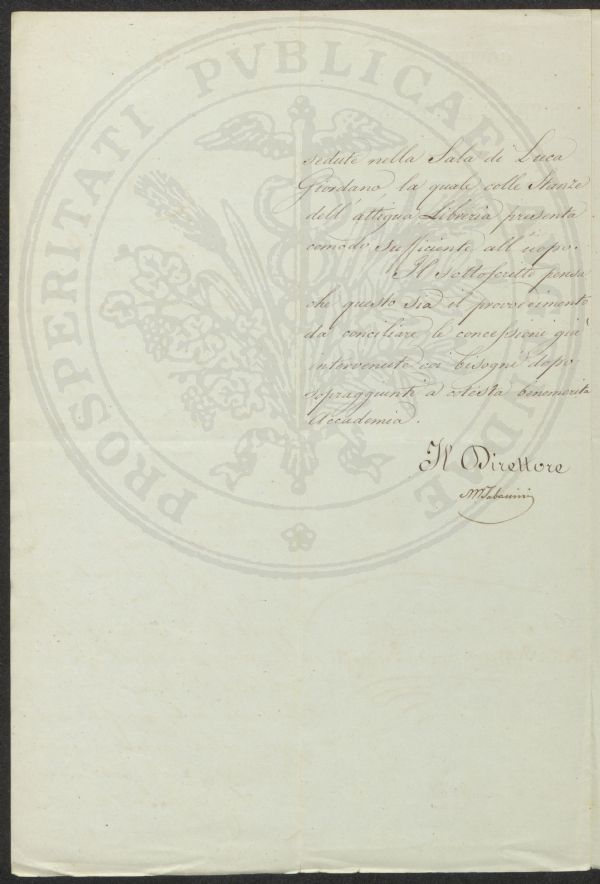 PROSPERITATI PVBLICAE
sedute nella Sala di Luca
Giordano, la quale colle Stanze
dell' attigua Libreria presenta
comodo sufficiente all' uopo.
Il sottoscritto pensa
che questo sia il provvedimento
da conciliare le concessioni già
intervenute coi bisogni dopo
sopraggiunti a cotesta benemerita
Accademia.
Il Direttore
MTabarrini